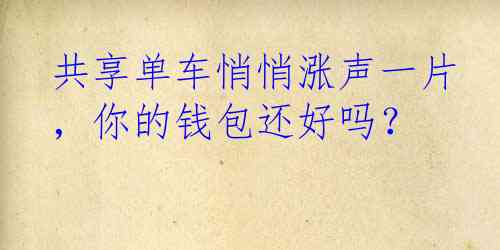 共享单车悄悄涨声一片
，你的钱包还好吗？